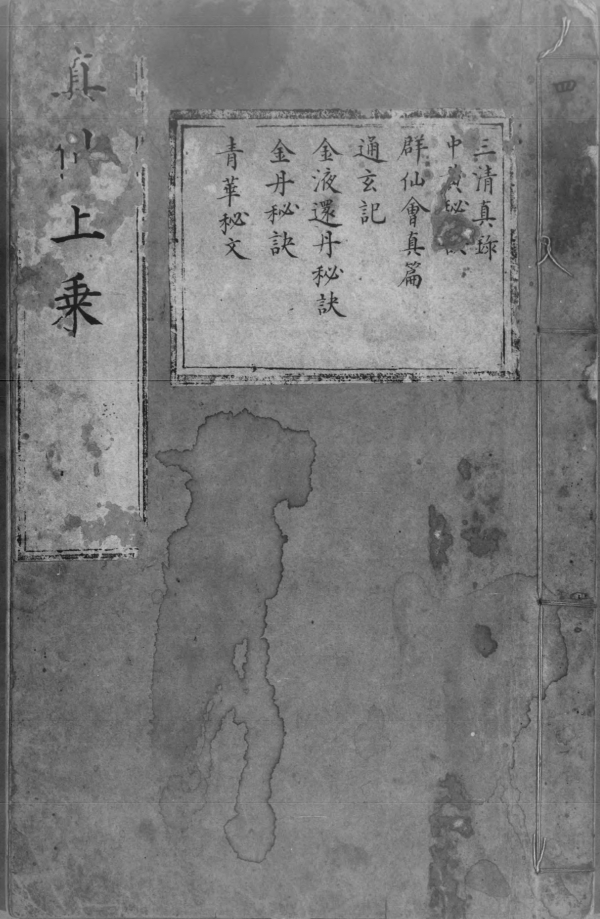 四
三清真錄
中黃秘訣
群仙會真篇
通玄記
金液還丹秘訣
金丹秘訣
青華秘文
真仙上乘